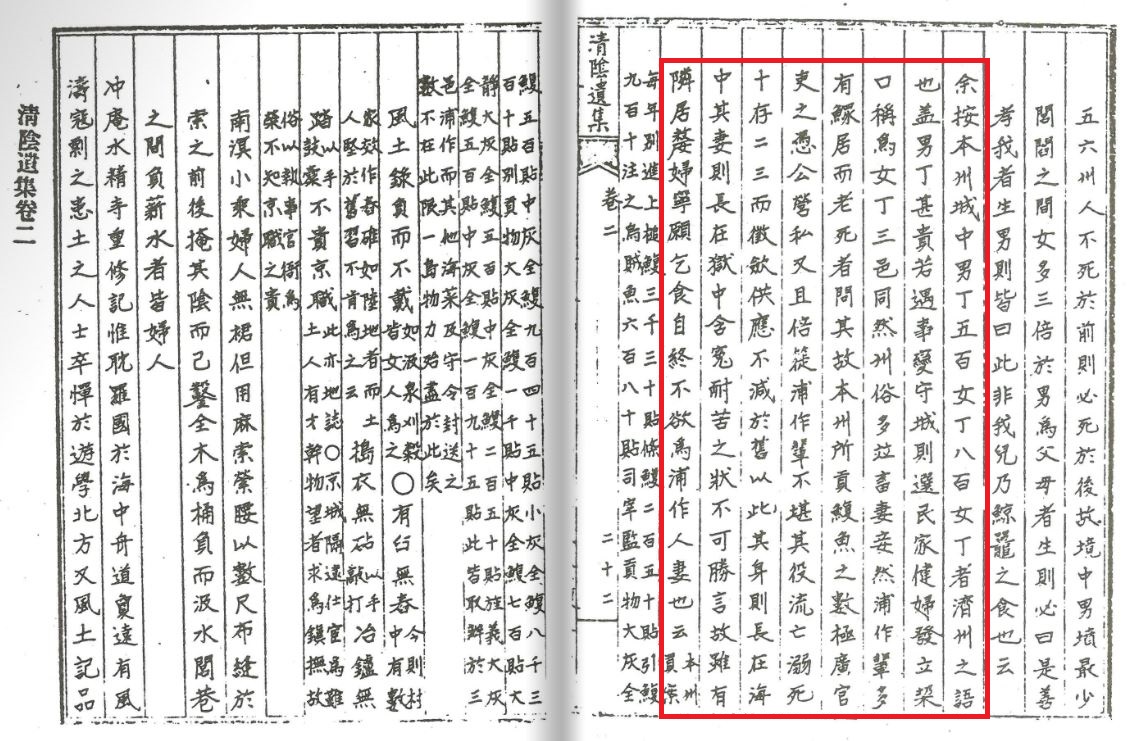 五六州人不死於前則必死於後故境中男墳最少
閭閻之間女多三倍於男爲父母者生則必曰是善
孝我者生男則皆曰此非我兒乃鯨鼉之食也云
余按本州城中男丁五百女丁八百女丁者濟州之語
也盖男丁甚貴若遇事變守城則選民家健婦發立堞
口稱爲女丁三邑同然州俗多竝畜妻妾然浦作輩多
有鰥居而老死者問其故本州所貢鰒魚之數極廣官
吏之憑公營私又且倍蓰浦作輩不堪其役流亡溺死
十存二三而徵斂供應不減於舊以此其身則長在海
中其妻則長在獄中含寃耐苦之狀不可勝言故雖有
隣居嫠婦寧願乞食自終不欲爲浦作人妻也云本州貢案
每年別進上搥鰒三千三十貼條鰒二百五十貼引鰒
九百十注之烏賊魚六百八十貼司宰監貢物大灰全
清陰遺集 卷二 二十二
鰒五百貼中灰全鰒九百四十五貼小灰全鰒八千三
百十貼別貢物大灰全鰒一千貼中灰全鰒七百貼大
靜大灰全鰒五百貼中灰全鰒二百五十貼旌義大灰
全鰒五百貼中灰全鰒一百九十五貼此皆取辦於三
邑浦作而其他海菜及守令封送之
數不在此限一島物力殆盡於此矣
風土錄負而不戴如汲泉刈穀皆女人爲之○有臼無舂今則村中有數
家效作舂碓如陸地者而土人堅於舊習不肯爲之云搗衣無砧以手敲打冶鑪無
踏以手鼓橐不貴京職此亦地誌○京城隔遠仕官爲難土人有才幹物望者求爲鎭撫故
俗以敎事官衙爲
榮不知京職之貴
南溟小乘婦人無裙但用麻索縈腰以數尺布縫於
索之前後掩其陰而已鑿全木爲桶負而汲水閭巷
之間負薪水者皆婦人
冲庵水精寺重修記惟耽羅國於海中舟道寔遠有風
濤寇剽之患土之人士卒憚於遊學北方又風土記品
清陰遺集卷二